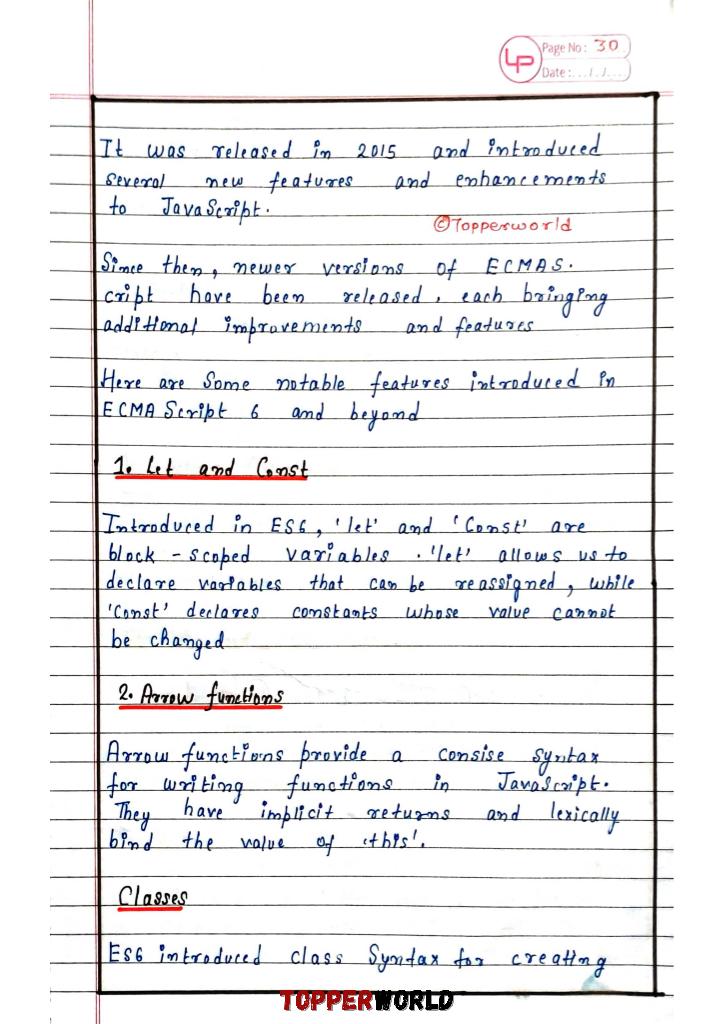 LP
Page No: 30
Date: .../../...
It was released in 2015 and introduced
several new features and enhancements
to JavaScript.
©Topperworld
Since then, newer versions of ECMAS.
cript have been released, each bringing
additional improvements and features
Here are Some notable features introduced in
ECMA Script 6 and beyond
1. Let and Const
Introduced in ES6, 'let' and 'Const' are
block - scoped variables . 'let' allows us to
declare variables that can be reassigned, while
'Const' declares constants whose value cannot
be changed
2. Arrow functions
Arrow functions provide a consise syntax
for writing functions in JavaScript.
They have implicit returns and lexically
bind the value of 'this'.
Classes
ES6 introduced class Syntax for creating
TOPPERWORLD